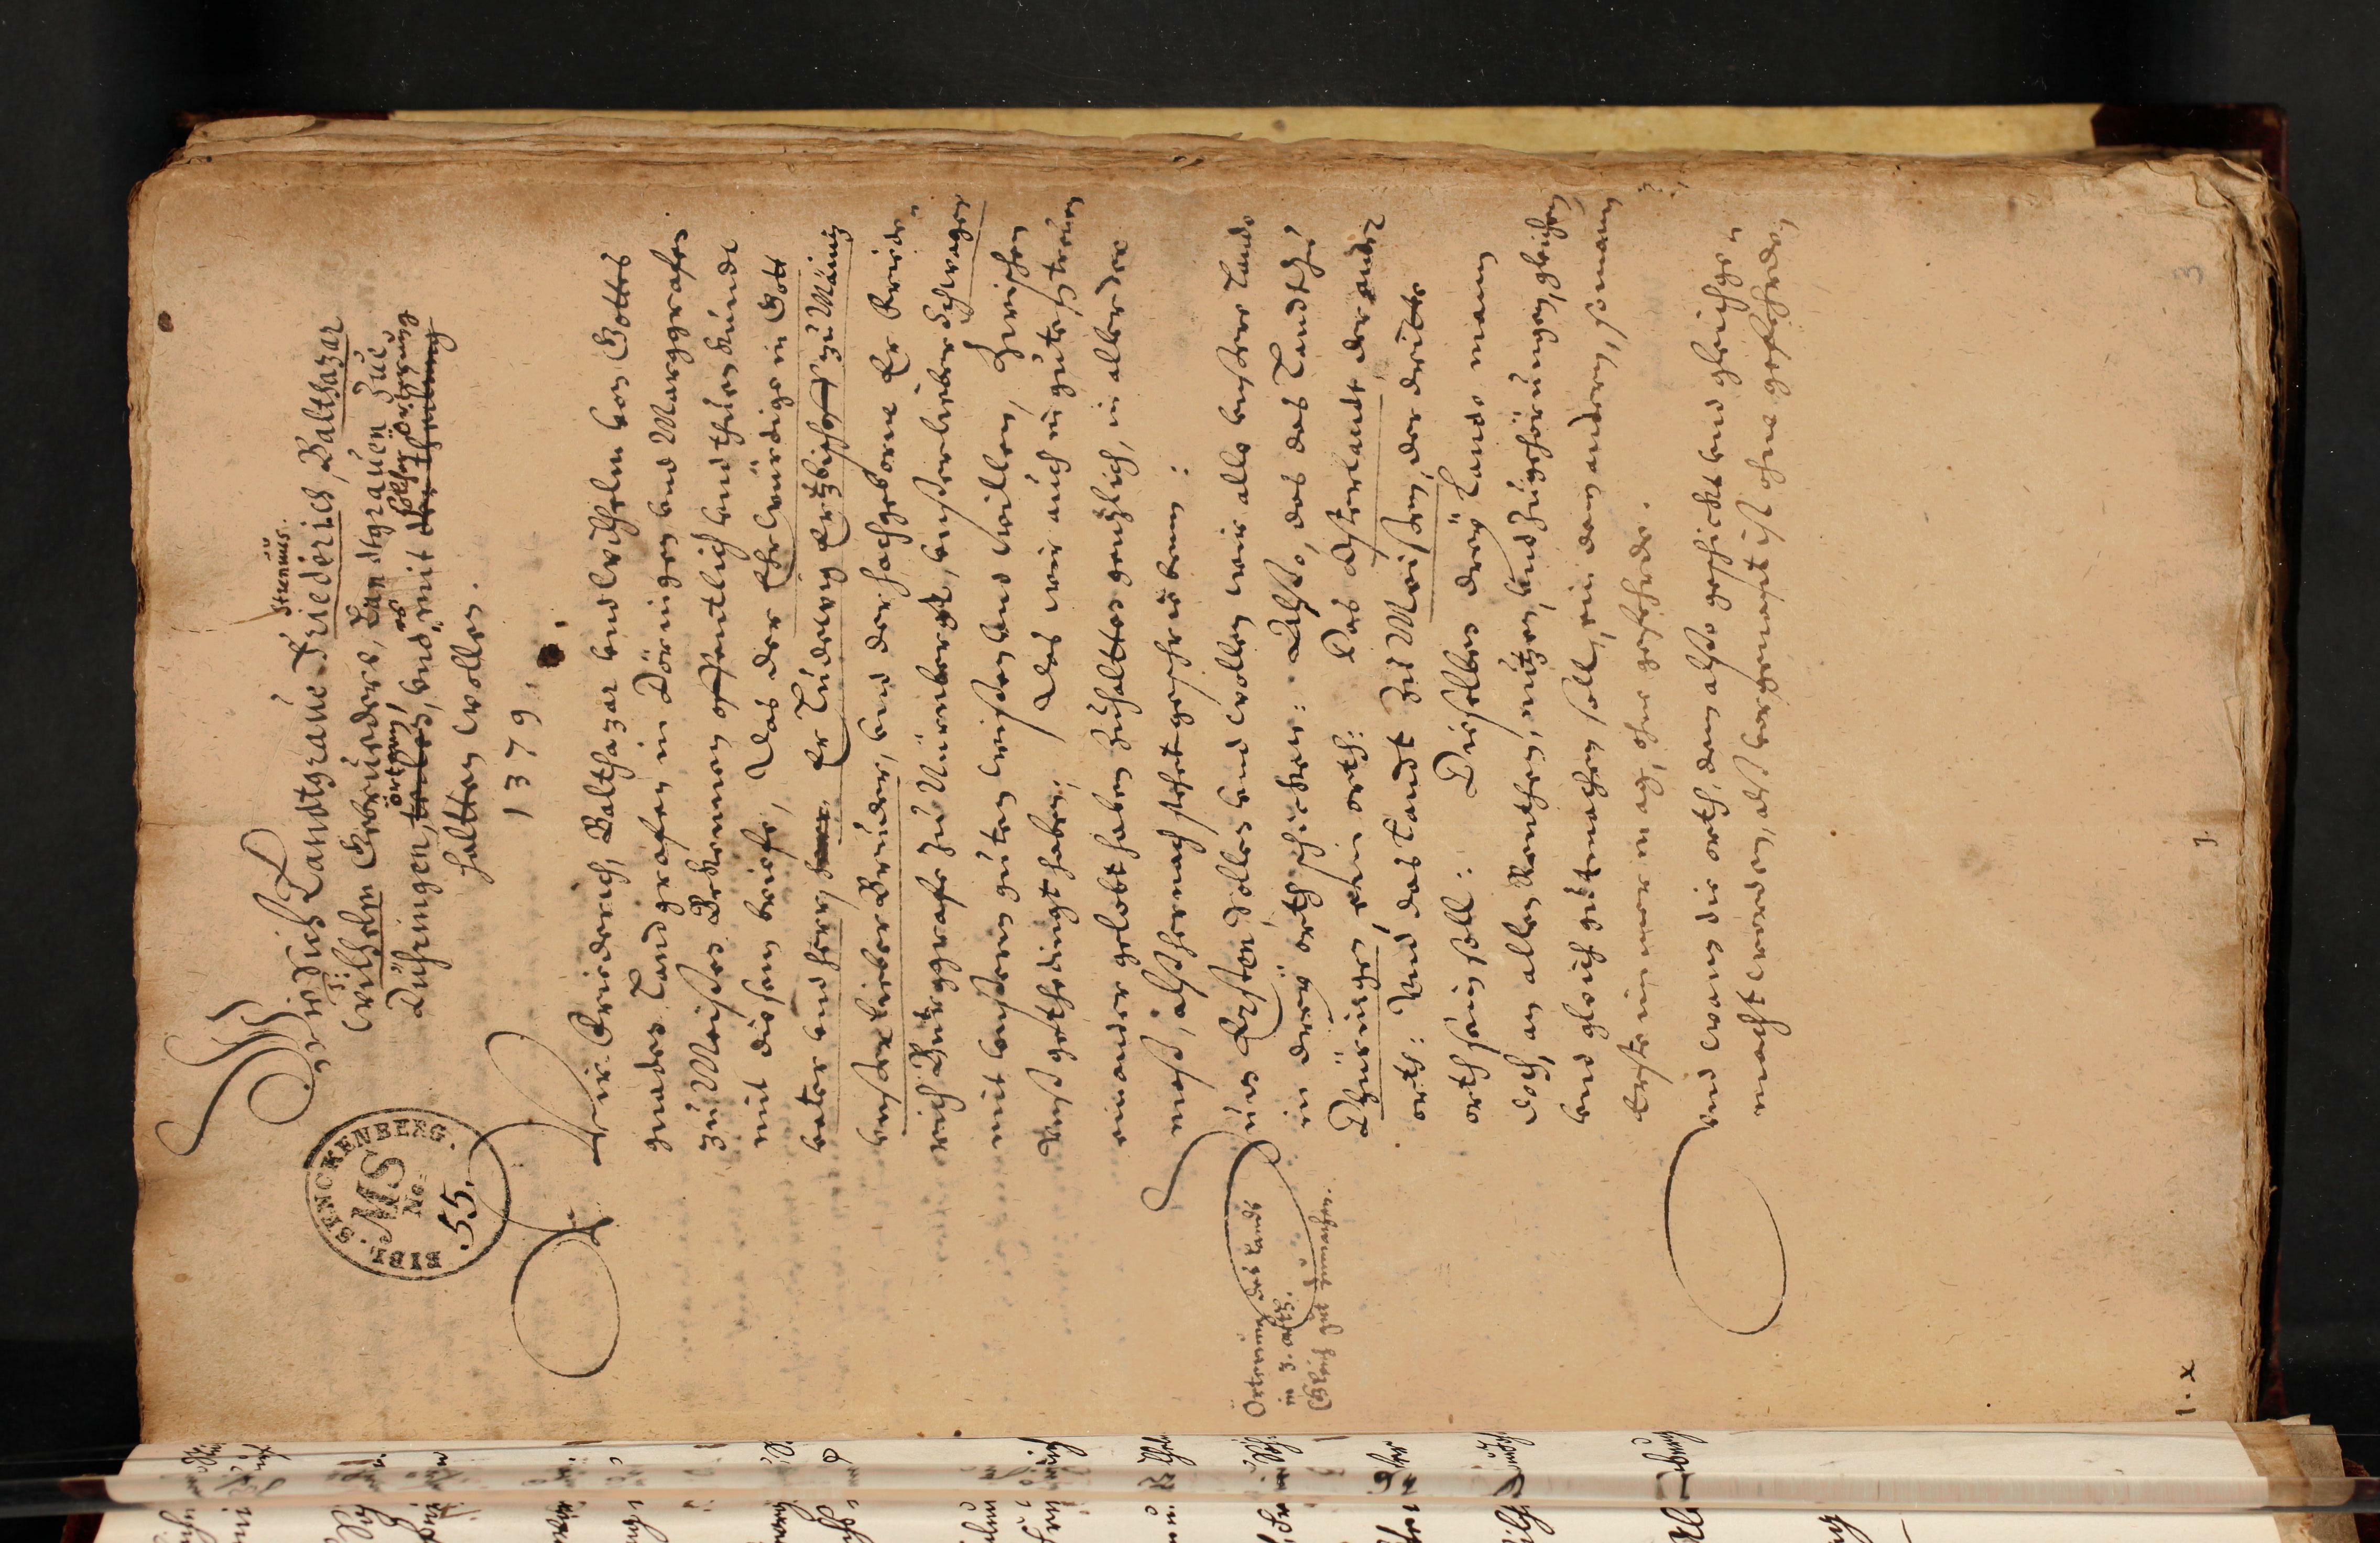 Wie sich Landtgraue Friederich, Balthazar
Strenuus.
vnd
Wilhelm Gebrüedere, Landtgrauen zue
Düringen, teilen, vnd es mit der theilung
örtern, solcher örterung
halten wollen.
1379.
Wir Friederich, Balthazar vnd Wilhelm von Gottes
gnaden Landgrafen in Döringen vnd Marggrafen
zu Meissen Bekennen offentlich vnd thuen kundt
mit diesem briefe, Das der Ehrwürdige in Gott
vater vnd herr, herr Er Ludewig Ertzbischoff zu Mäintz
vnser lieber Bruder, vnd der hochgeborne Er Friede-
rich Burggrafe zu Nürnberg, vnser lieber Schwager
mit vnserm guten wissen vnd willen, Zwischen
Vnß gethedingt haben, Das wir auch in guten treuen
einander gelobt haben zuhalten gentzlich, in aller der
mass, alß hernach stehet geschrieben:
Zum Ersten, Sollen vnd wollen wir alle vnsere Lande
in drey orth schicken: Alßo, das das Landt zu
Düringen, ein orth: Das Osterlandt, der ander
orth: Vnd das Landt zu Meissen, der dritte
orth sein soll: Dieselben drey Lande mann
doch, an allen Renthen, nützen, vnd zugehörungen, gleichen
vnd gleich gut machen soll, ein dem andern, so mann
beste immer mag, ohne gefehrde.
Vnd wann die orth, dann alßo geschickt vnd gleich ge-
macht werden, alß vorgenant ist ohne gefehrde,
Örterung der Lande
in 3. orth.
Gleich gut zumachen.
BIBL. SENCKENBERG.
MS
No.
55.
3
1.
1. x